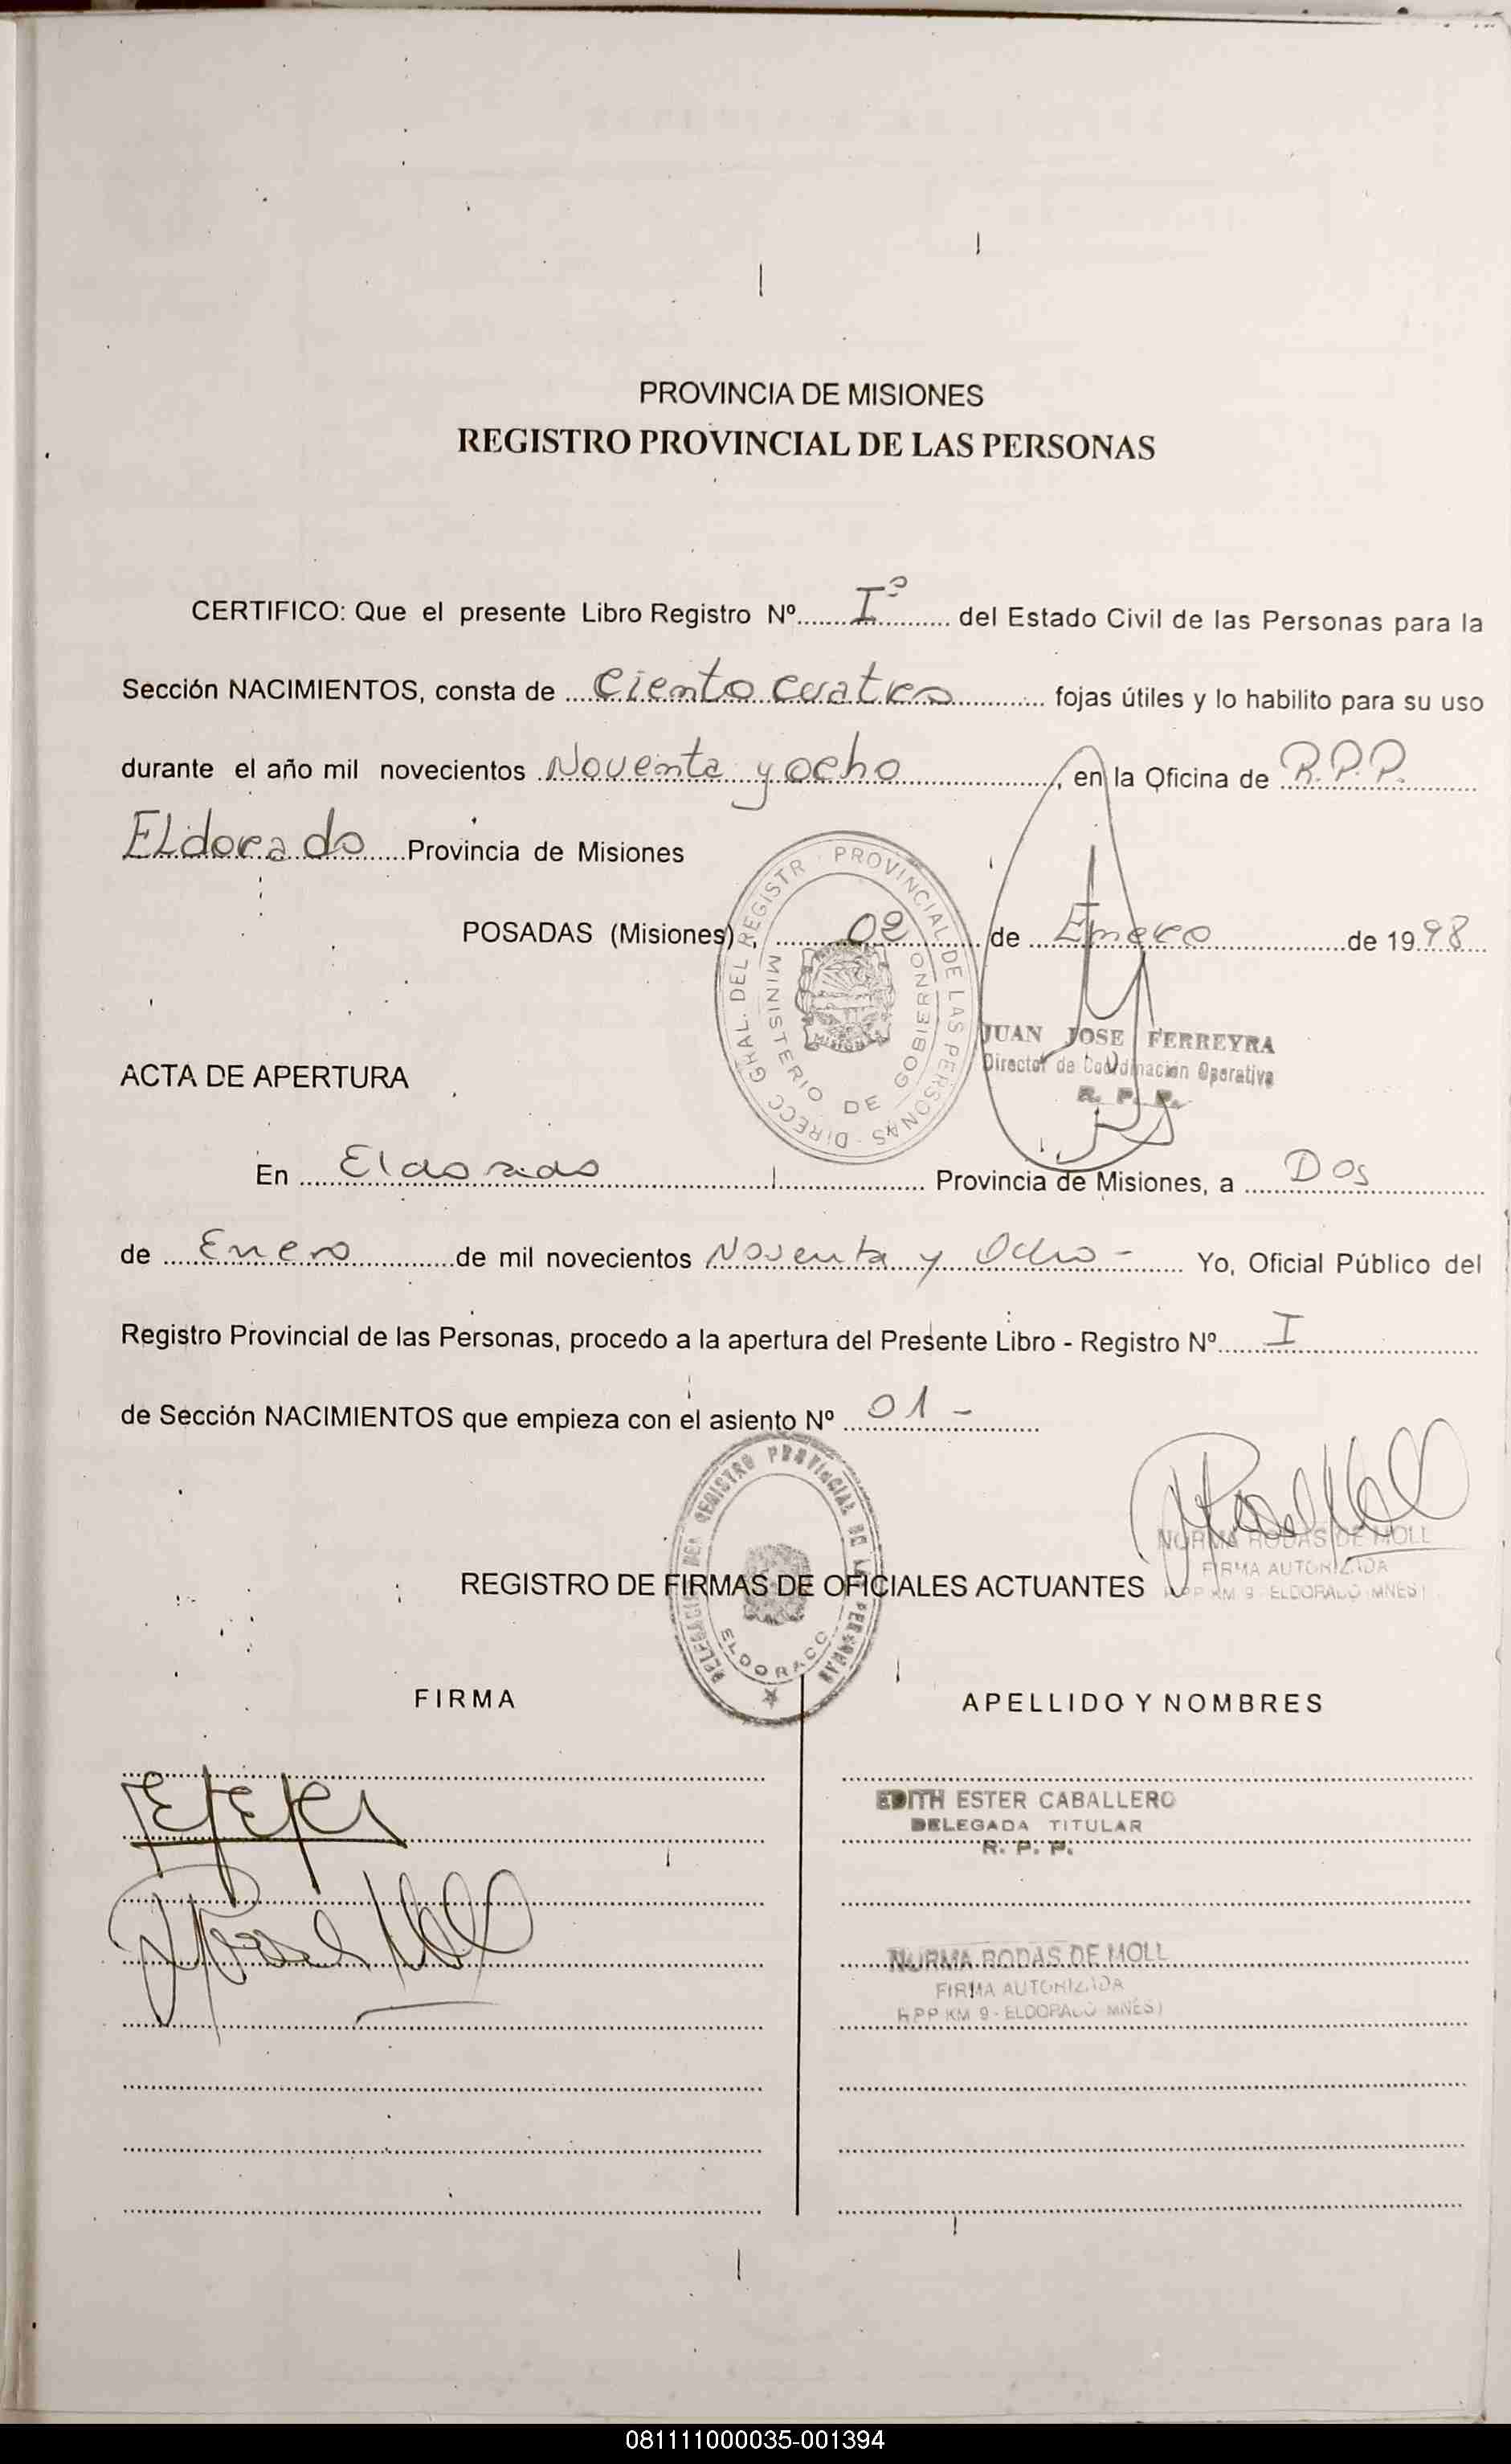 PROVINCIA DE MISIONES
REGISTRO PROVINCIAL DE LAS PERSONAS
CERTIFICO: Que el presente Libro Registro Nº I° del Estado Civil de las Personas para la
Sección NACIMIENTOS, consta de Ciento cuatro fojas útiles y lo habilito para su uso
durante el año mil novecientos Noventa y ocho, en la Oficina de R.P.P.
ELdorado Provincia de Misiones
POSADAS (Misiones), 02 de Enero de 1998
DIRECC GRAL. DEL REGISTR PROVINCIAL DE LAS PERSONAS
MINISTERIO DE GOBIERNO
MISIONES
JUAN JOSE FERREYRA
Director de Coordinación Operativa
R. P. P.
ACTA DE APERTURA
En Eldorado Provincia de Misiones, a Dos
de Enero de mil novecientos Noventa y Ocho - Yo, Oficial Público del
Registro Provincial de las Personas, procedo a la apertura del Presente Libro - Registro Nº I
de Sección NACIMIENTOS que empieza con el asiento Nº 01 -
DELEGACION DEL REGISTRO PROVINCIAL DE LAS PERSONAS
ELDORADO
NORMA RODAS DE MOLL
FIRMA AUTORIZADA
R.P.P KM 9 - ELDORADO MNES)
REGISTRO DE FIRMAS DE OFICIALES ACTUANTES
FIRMA
APELLIDO Y NOMBRES
EDITH ESTER CABALLERO
DELEGADA TITULAR
R. P. P.
NORMA RODAS DE MOLL
FIRMA AUTORIZADA
R.P.P KM 9 - ELDORADO MNES)
081111000035-001394